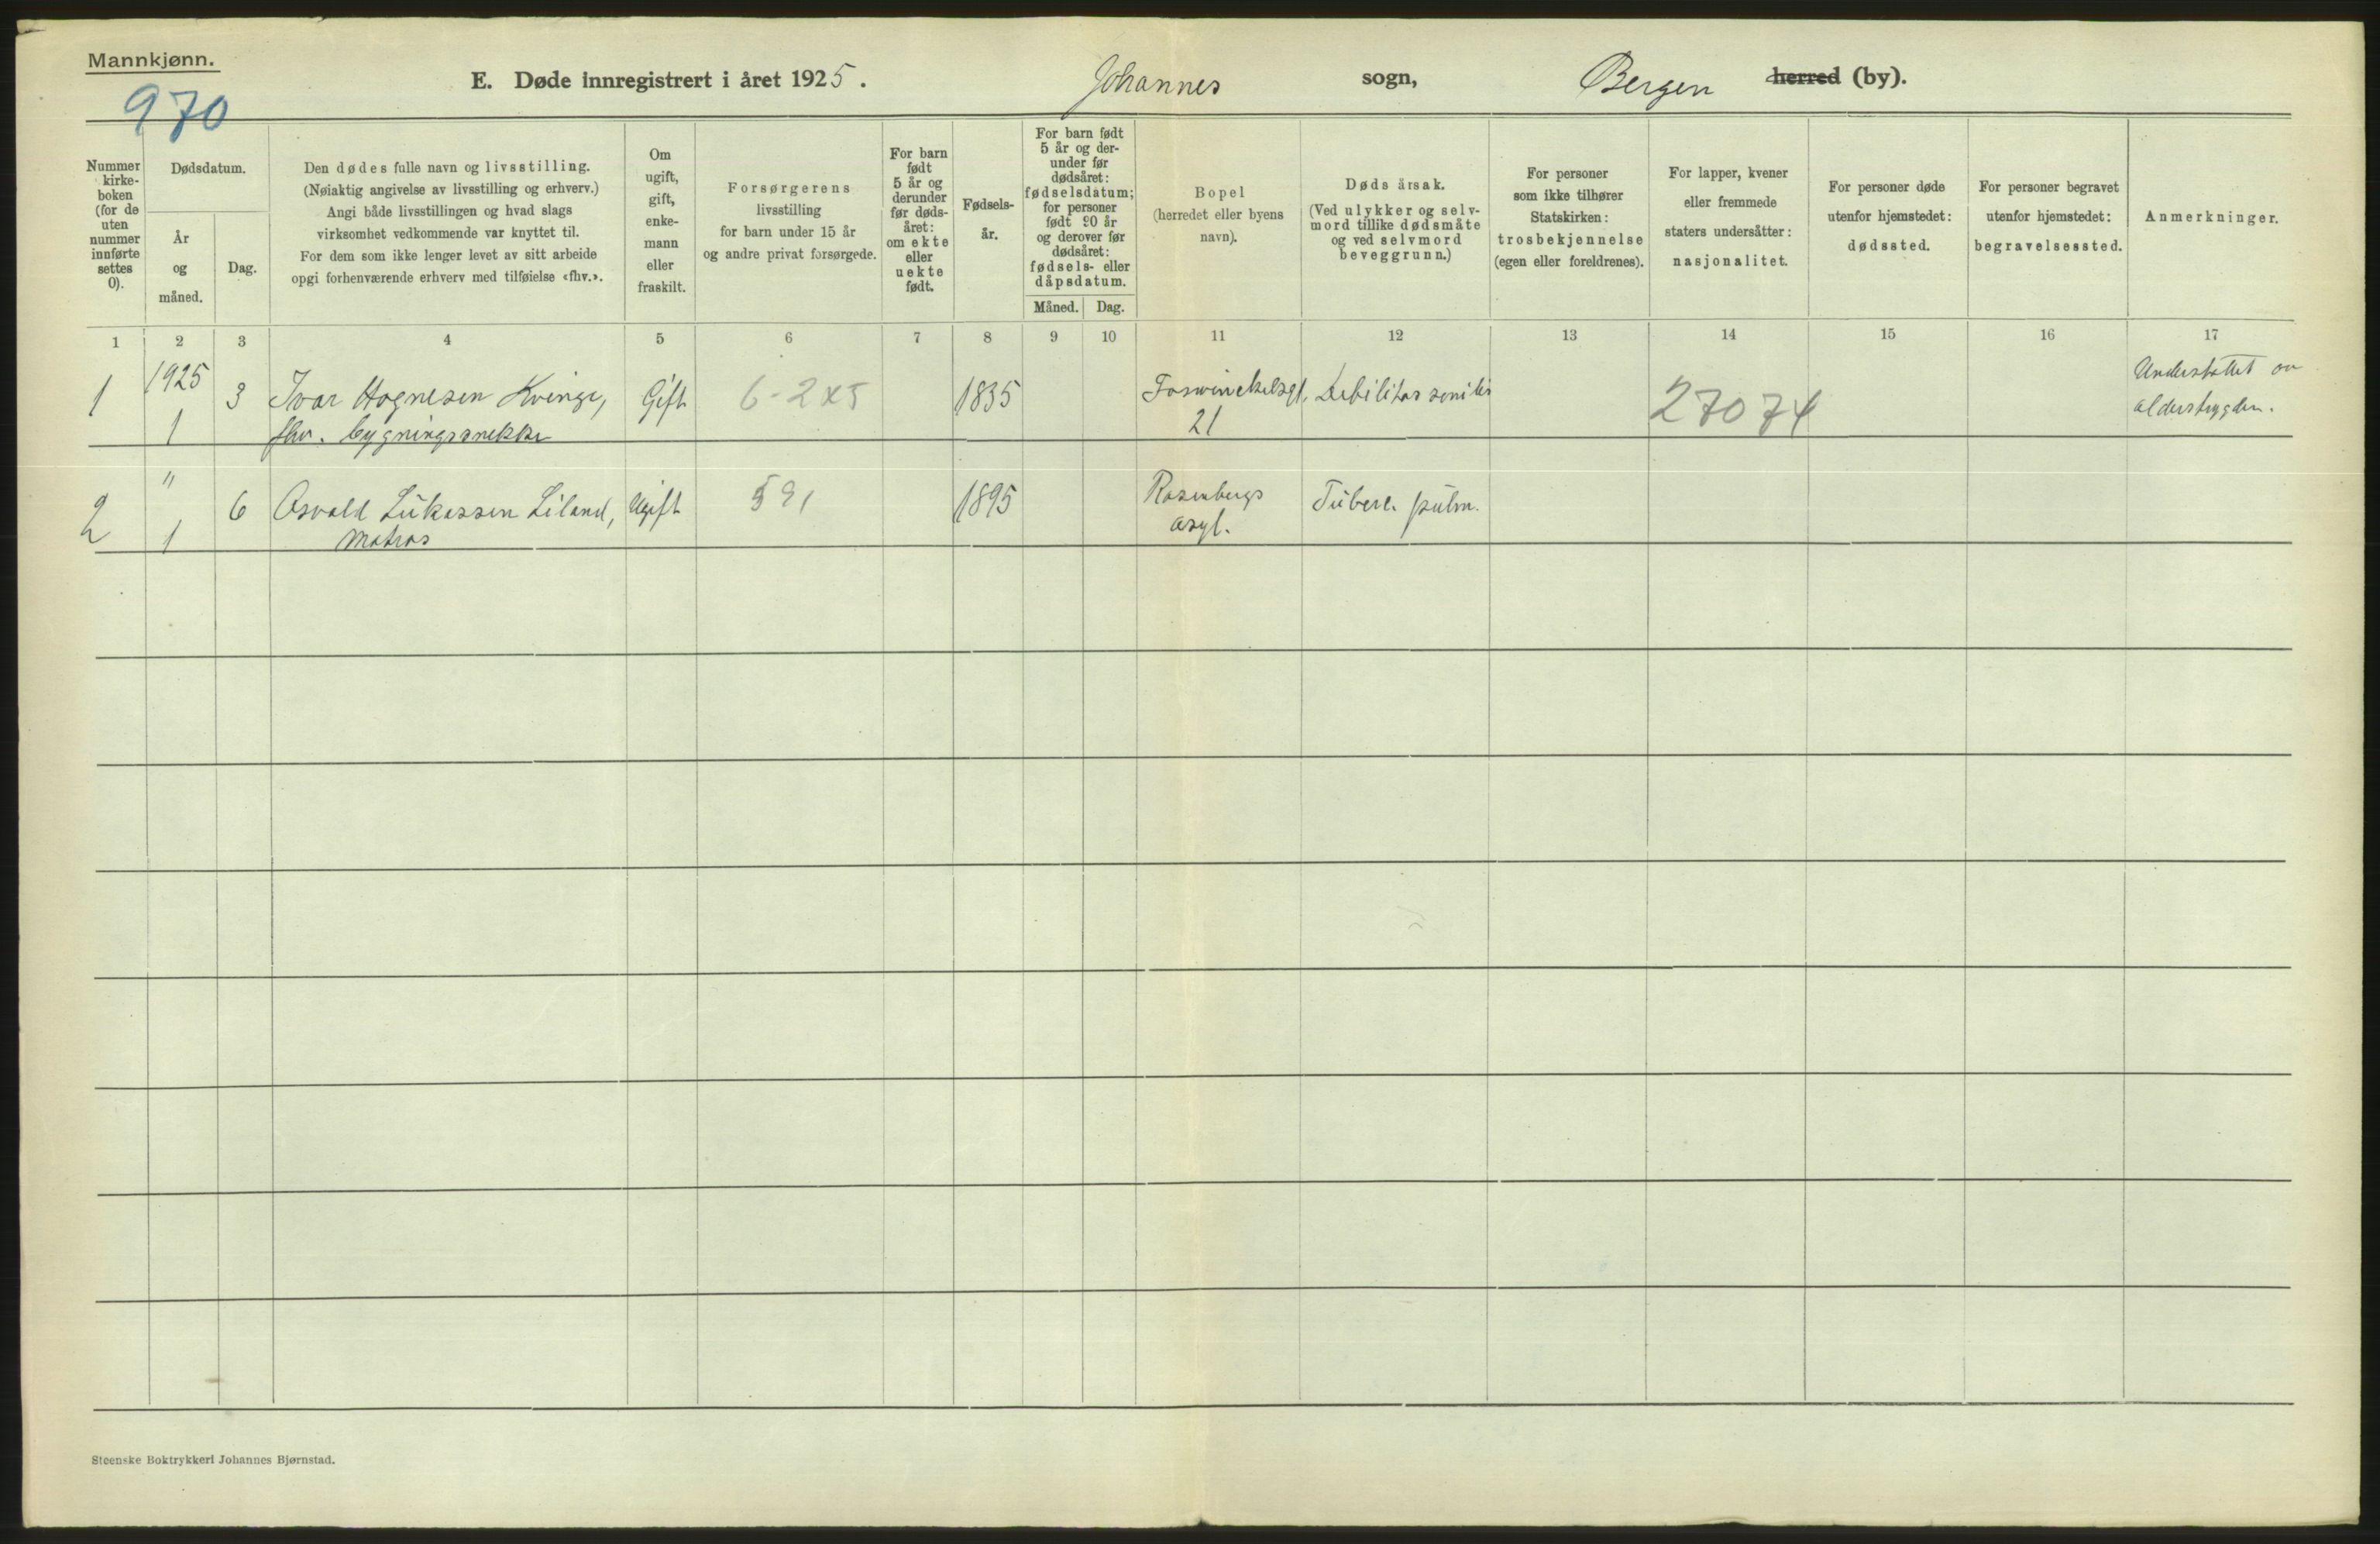 Mannkjønn.
970
E. Døde innregistrert i året 1925. Johannes sogn, Bergen herred (by).
Nummer
kirke-
boken
(for de
uten
nummer
innførte
settes
0).
Dødsdatum.
År
og
måned.
Dag.
Den dødes fulle navn og livsstilling.
(Nøiaktig angivelse av livsstilling og erhverv.)
Angi både livsstillingen og hvad slags
virksomhet vedkommende var knyttet til.
For dem som ikke lenger levet av sitt arbeide
opgi forhenværende erhverv med tilføielse «fhv.».
Om
ugift,
gift,
enke-
mann
eller
fraskilt.
Forsørgerens
livsstilling
for barn under 15 år
og andre privat forsørgede.
For barn
født
5 år og
derunder
før døds-
året:
om ekte
eller
uekte
født.
Fødsels-
år.
For barn født
5 år og der-
under før
dødsåret:
fødselsdatum;
for personer
født 90 år
og derover før
dødsåret:
fødsels- eller
dåpsdatum.
Måned. Dag.
Bopel
(herredet eller byens
navn).
Døds årsak.
(Ved ulykker og selv-
mord tillike dødsmåte
og ved selvmord
beveggrunn.)
For personer
som ikke tilhører
Statskirken:
trosbekjennelse
(egen eller foreldrenes).
For lapper, kvener
eller fremmede
staters undersåtter:
nasjonalitet.
For personer døde
utenfor hjemstedet:
dødssted.
For personer begravet
utenfor hjemstedet:
begravelsessted.
Anmerkninger.
1 2 3 4 5 6 7 8 9 10 11 12 13 14 15 16 17
1 1925 1 3 Ivar Hognesen Kvinge, Gift 6-2x5 1835 Debilitas senilis 27074 Understøttet av
fhv. bygningssnekker 21 alderstrygden.
2 " 1 6 Osvald Lukassen Liland, Ugift 591 1895 Rosenbergs Tuberc. pulm.
Matros asyl.
Steenske Boktrykkeri Johannes Bjørnstad.